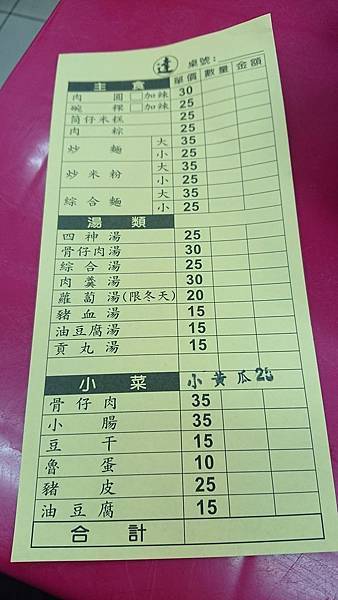 達 桌號:
主食 單價 數量 金額
肉圓 □加辣 30
碗粿 □加辣 25
筒仔米糕 25
肉粽 25
炒麵 大 35
小 25
炒米粉 大 35
小 25
綜合麵 大 35
小 25
湯類
四神湯 25
骨仔肉湯 30
綜合湯 25
肉羹湯 30
蘿蔔湯(限冬天) 20
豬血湯 15
油豆腐湯 15
貢丸湯 15
小菜 小黃瓜25
骨仔肉 35
小腸 35
豆干 15
魯蛋 10
豬皮 25
油豆腐 15
合計